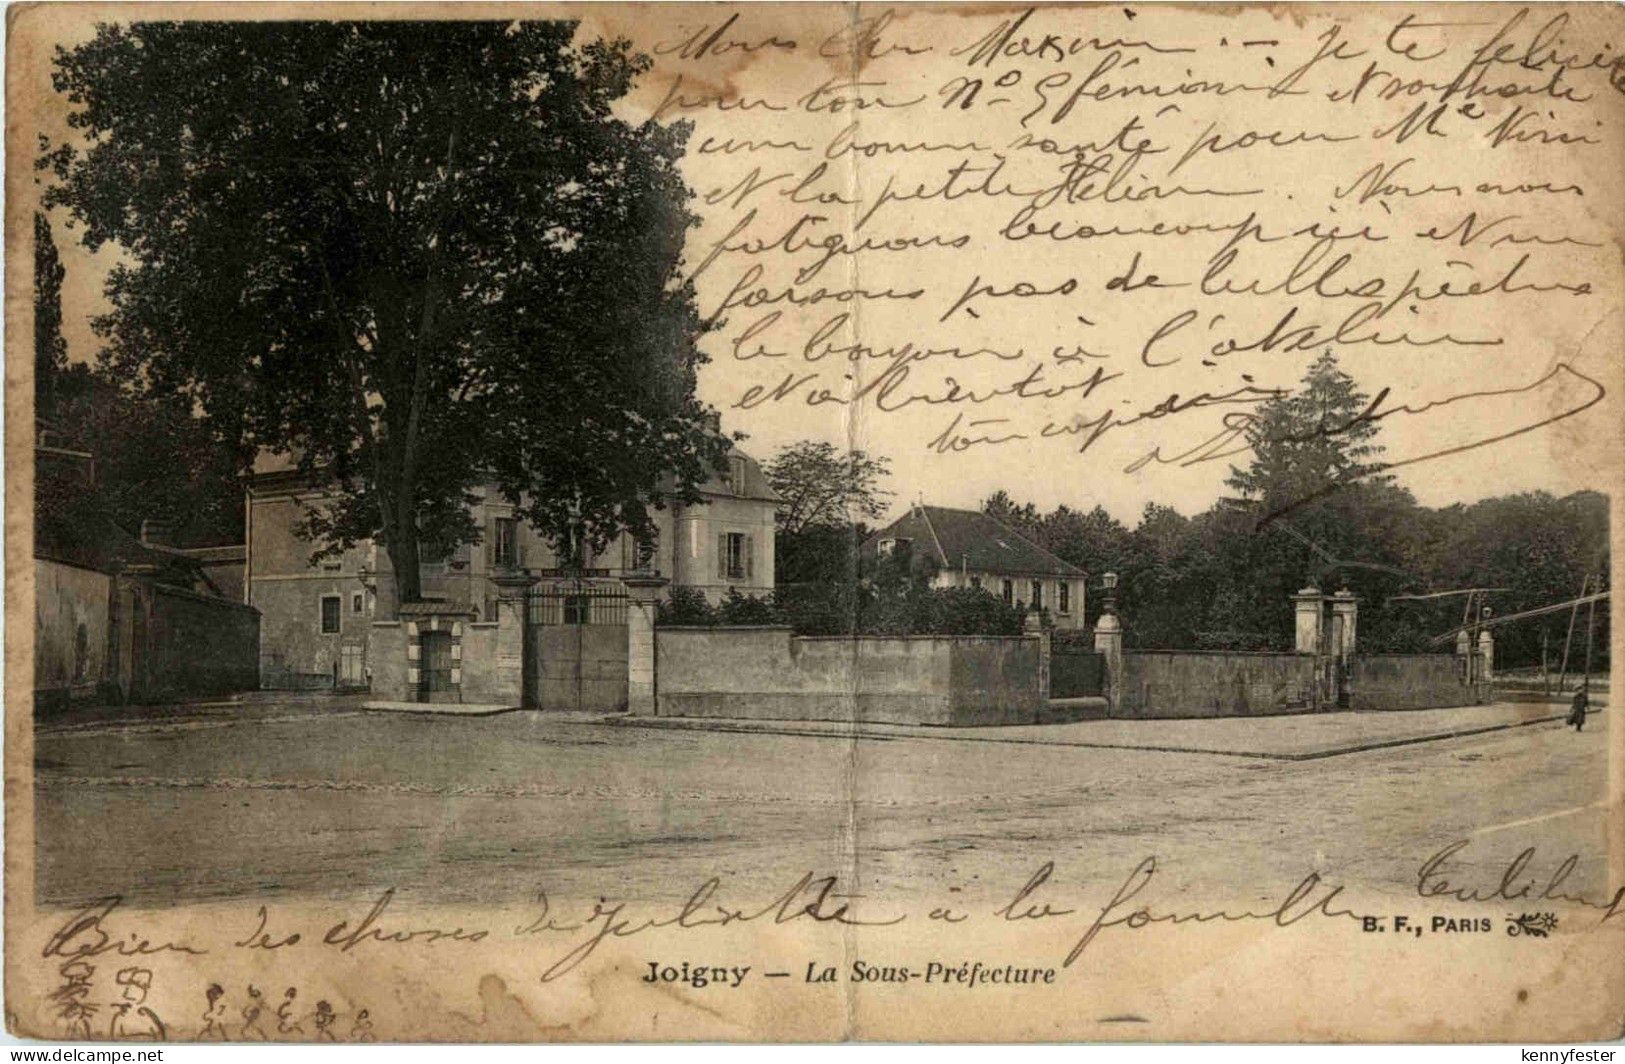 Mon cher Maxim . — Je te felicite
pour ton N° 5 féminin et souhaite
une bonne santé pour Me Nini
et la petite Hélène . Nous nous
fatiguons beaucoup ici et nous
faisons pas de belles pêches
le bonjour à l'atelier
et à bientôt
ton copain
Bien des choses de Juliette à la famille
B. F., PARIS
Joigny — La Sous-Préfecture
kennyfester